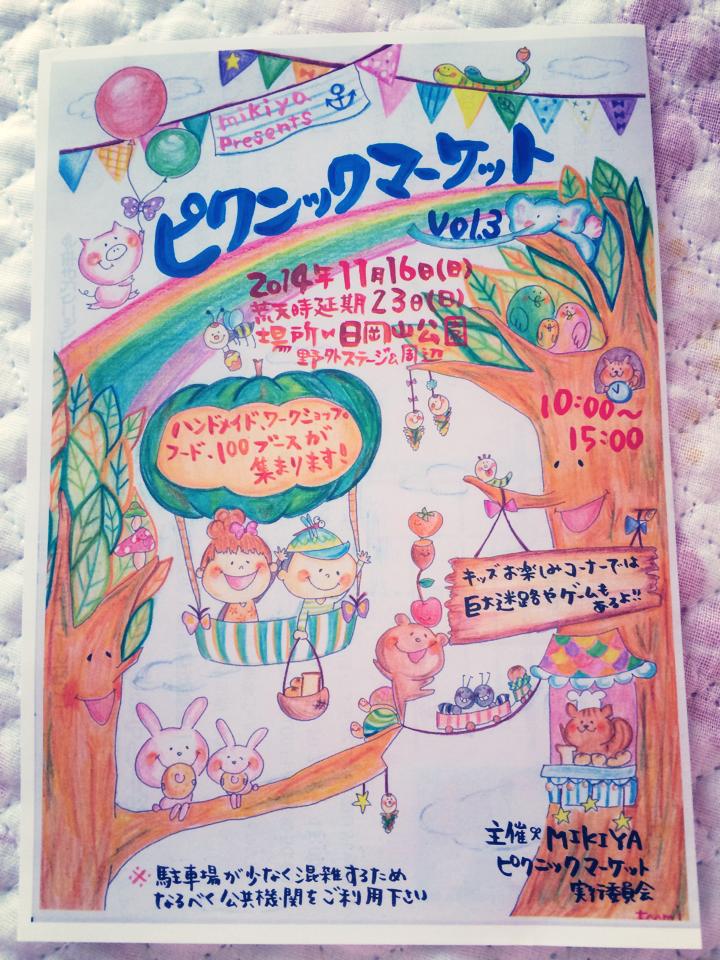 mikiya
Presents
ピクニックマーケット
vol.3
2014年11月16日(日)
荒天時延期23日(日)
場所 日岡山公園
野外ステージ周辺
10:00〜
15:00
ハンドメイド、ワークショップ。
フード、100ブースが
集まります!
キッズお楽しみコーナーでは
巨大迷路やゲームも
あるよ!!
主催 MIKIYA
ピクニックマーケット
実行委員会
※駐車場が少なく混雑するため
なるべく公共機関をご利用下さい